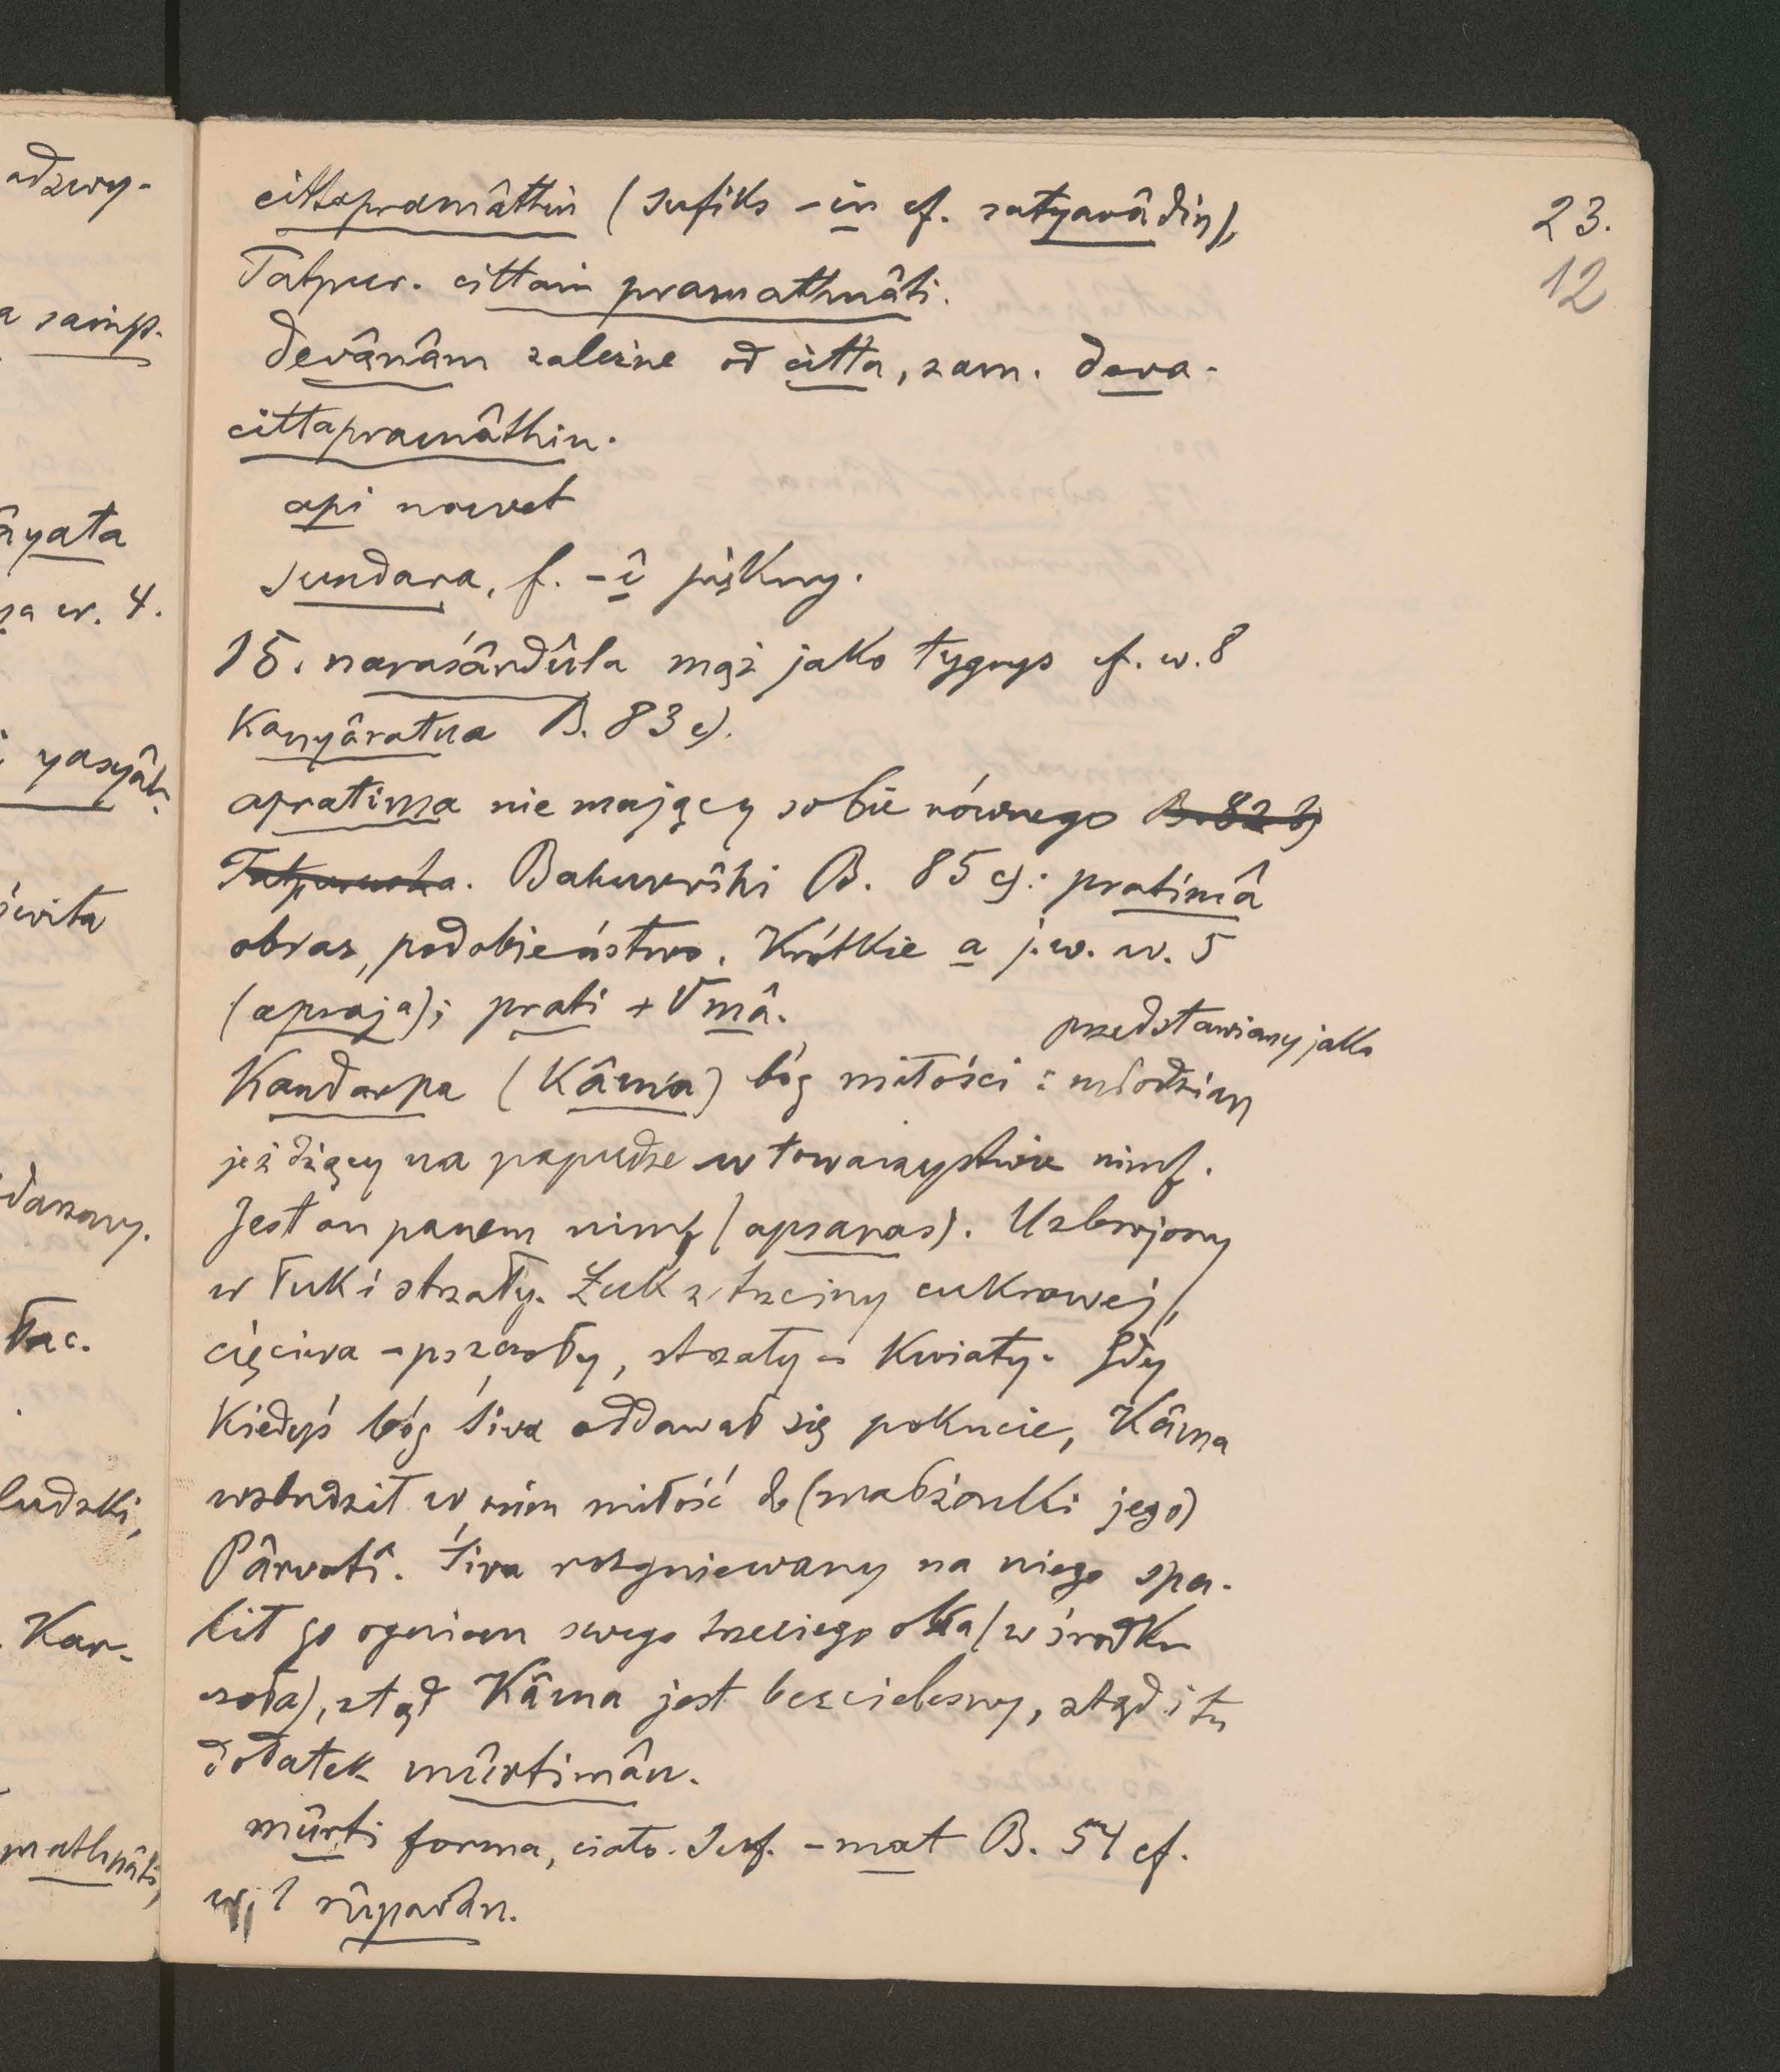 cittapramâthin (sufiks -in cf. satyavâdin),
Tatpur. cittaṁ pramathnâti.
devânâm zależne od citta, zam. deva-
cittapramâthin.
api nawet
sundara, f. -î piękny.
15. naraśârdûla mąż jako tygrys cf. w. 8
Kanyâratna B. 83 c).
apratima nie mający sobie równego B. 82 b)
Tatpurusha. Bahuvrîhi B. 85 c): pratimâ
obraz, podobieństwo. Krótkie a j. w. w. 5
(apraja); prati + √mâ.
przedstawiany jako
Kandarpa (Kâma) bóg miłości : młodzian
jeżdżący na papudze w towarzystwie nimf.
Jest on panem nimf (apsaras). Uzbrojony
w łuk i strzały. Łuk z trzciny cukrowej,
cięciwa - pszczoły, strzały - kwiaty. Gdy
kiedyś bóg Śiva oddawał się pokucie, Kâma
wzbudził w nim miłość do (małżonki jego)
Pârvatî. Śiva rozgniewany na niego spa-
lił go ogniem swego trzeciego oka (w środku
czoła), stąd Kâma jest bezcielesny, stąd i tu
dodatek mûrtimân.
mûrti forma, ciało. Suf. -mat B. 54 cf.
w. 1 rûpavân.
23.
12
adzwy-
a saṁp.
âyata
w. 4.
yasyâḥ
tac.
ludzki,
Kar-
mathnâti,